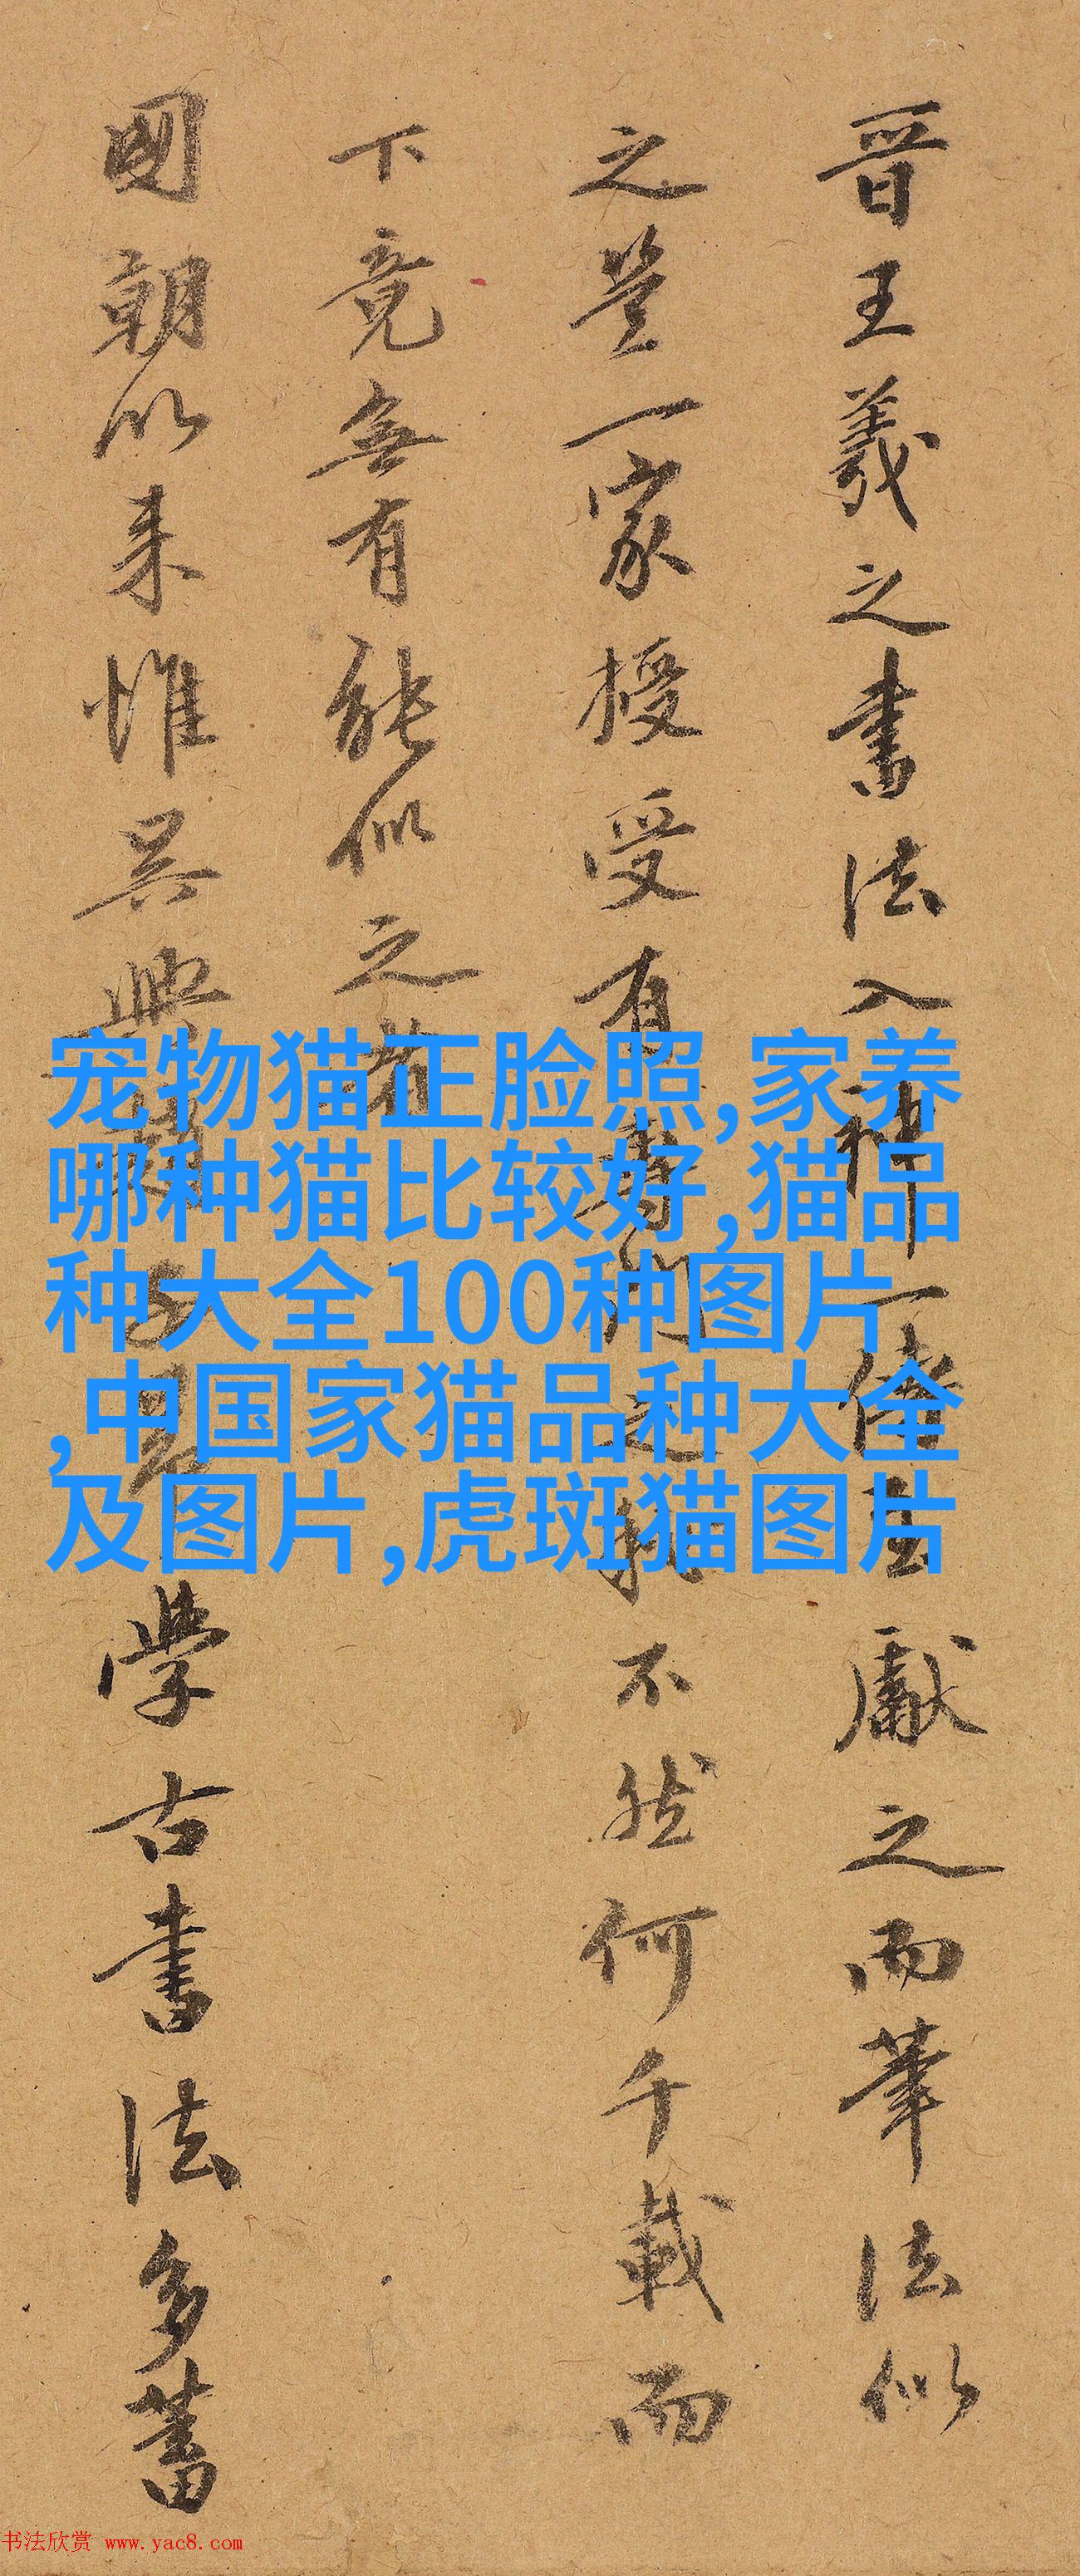 晋王羲之書法入神一傳獻之而筆法似
之豈一家授受有專門之不然何千載而
下竟無有能似之者
國朝以来惟吴興趙子昂學古書法多蓄
宠物猫正脸照,家养
哪种猫比较好,猫品
种大全100种图片
,中国家猫品种大全
及图片,虎斑猫图片
书法欣赏 www.yac8.com